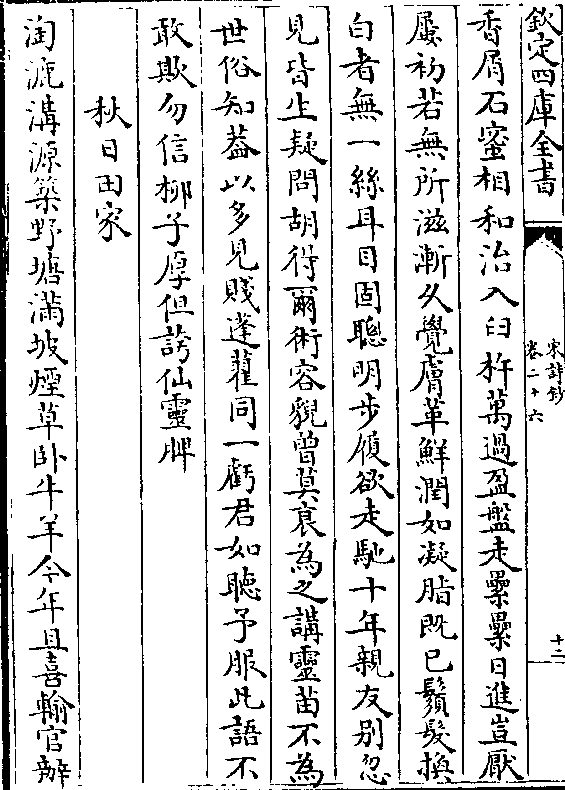 欽定四庫全書
宋詩鈔
卷二十六
十二
香屑石蜜相和治入臼杵萬過盈盤走纍纍日進豈厭
屢初若無所滋漸久覺膚革鮮潤如凝脂既已鬚髮換
白者無一絲耳目固聰明步履欲走馳十年親友别忽
見皆生疑問胡得爾術容貌曽莫衰為之講靈苗不為
世俗知葢以多見賤蓬藋同一虧君如聽予服此語不
敢欺勿信栁子厚但誇仙靈脾
秋日田家
淘漉溝源築野塘滿坡煙草卧牛羊今年且喜輸官辦